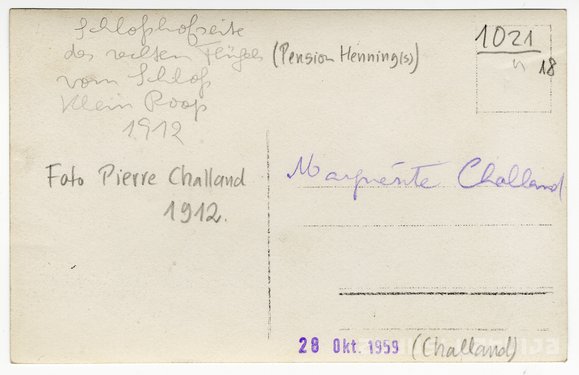 Schloßhofseite
des rechten Flügels (Pension Henning(s))
vom Schloß
Klein Roop
1912
Foto Pierre Challand
1912.
1021
18
Marguérite Challand
28 Okt. 1959 (Challand)